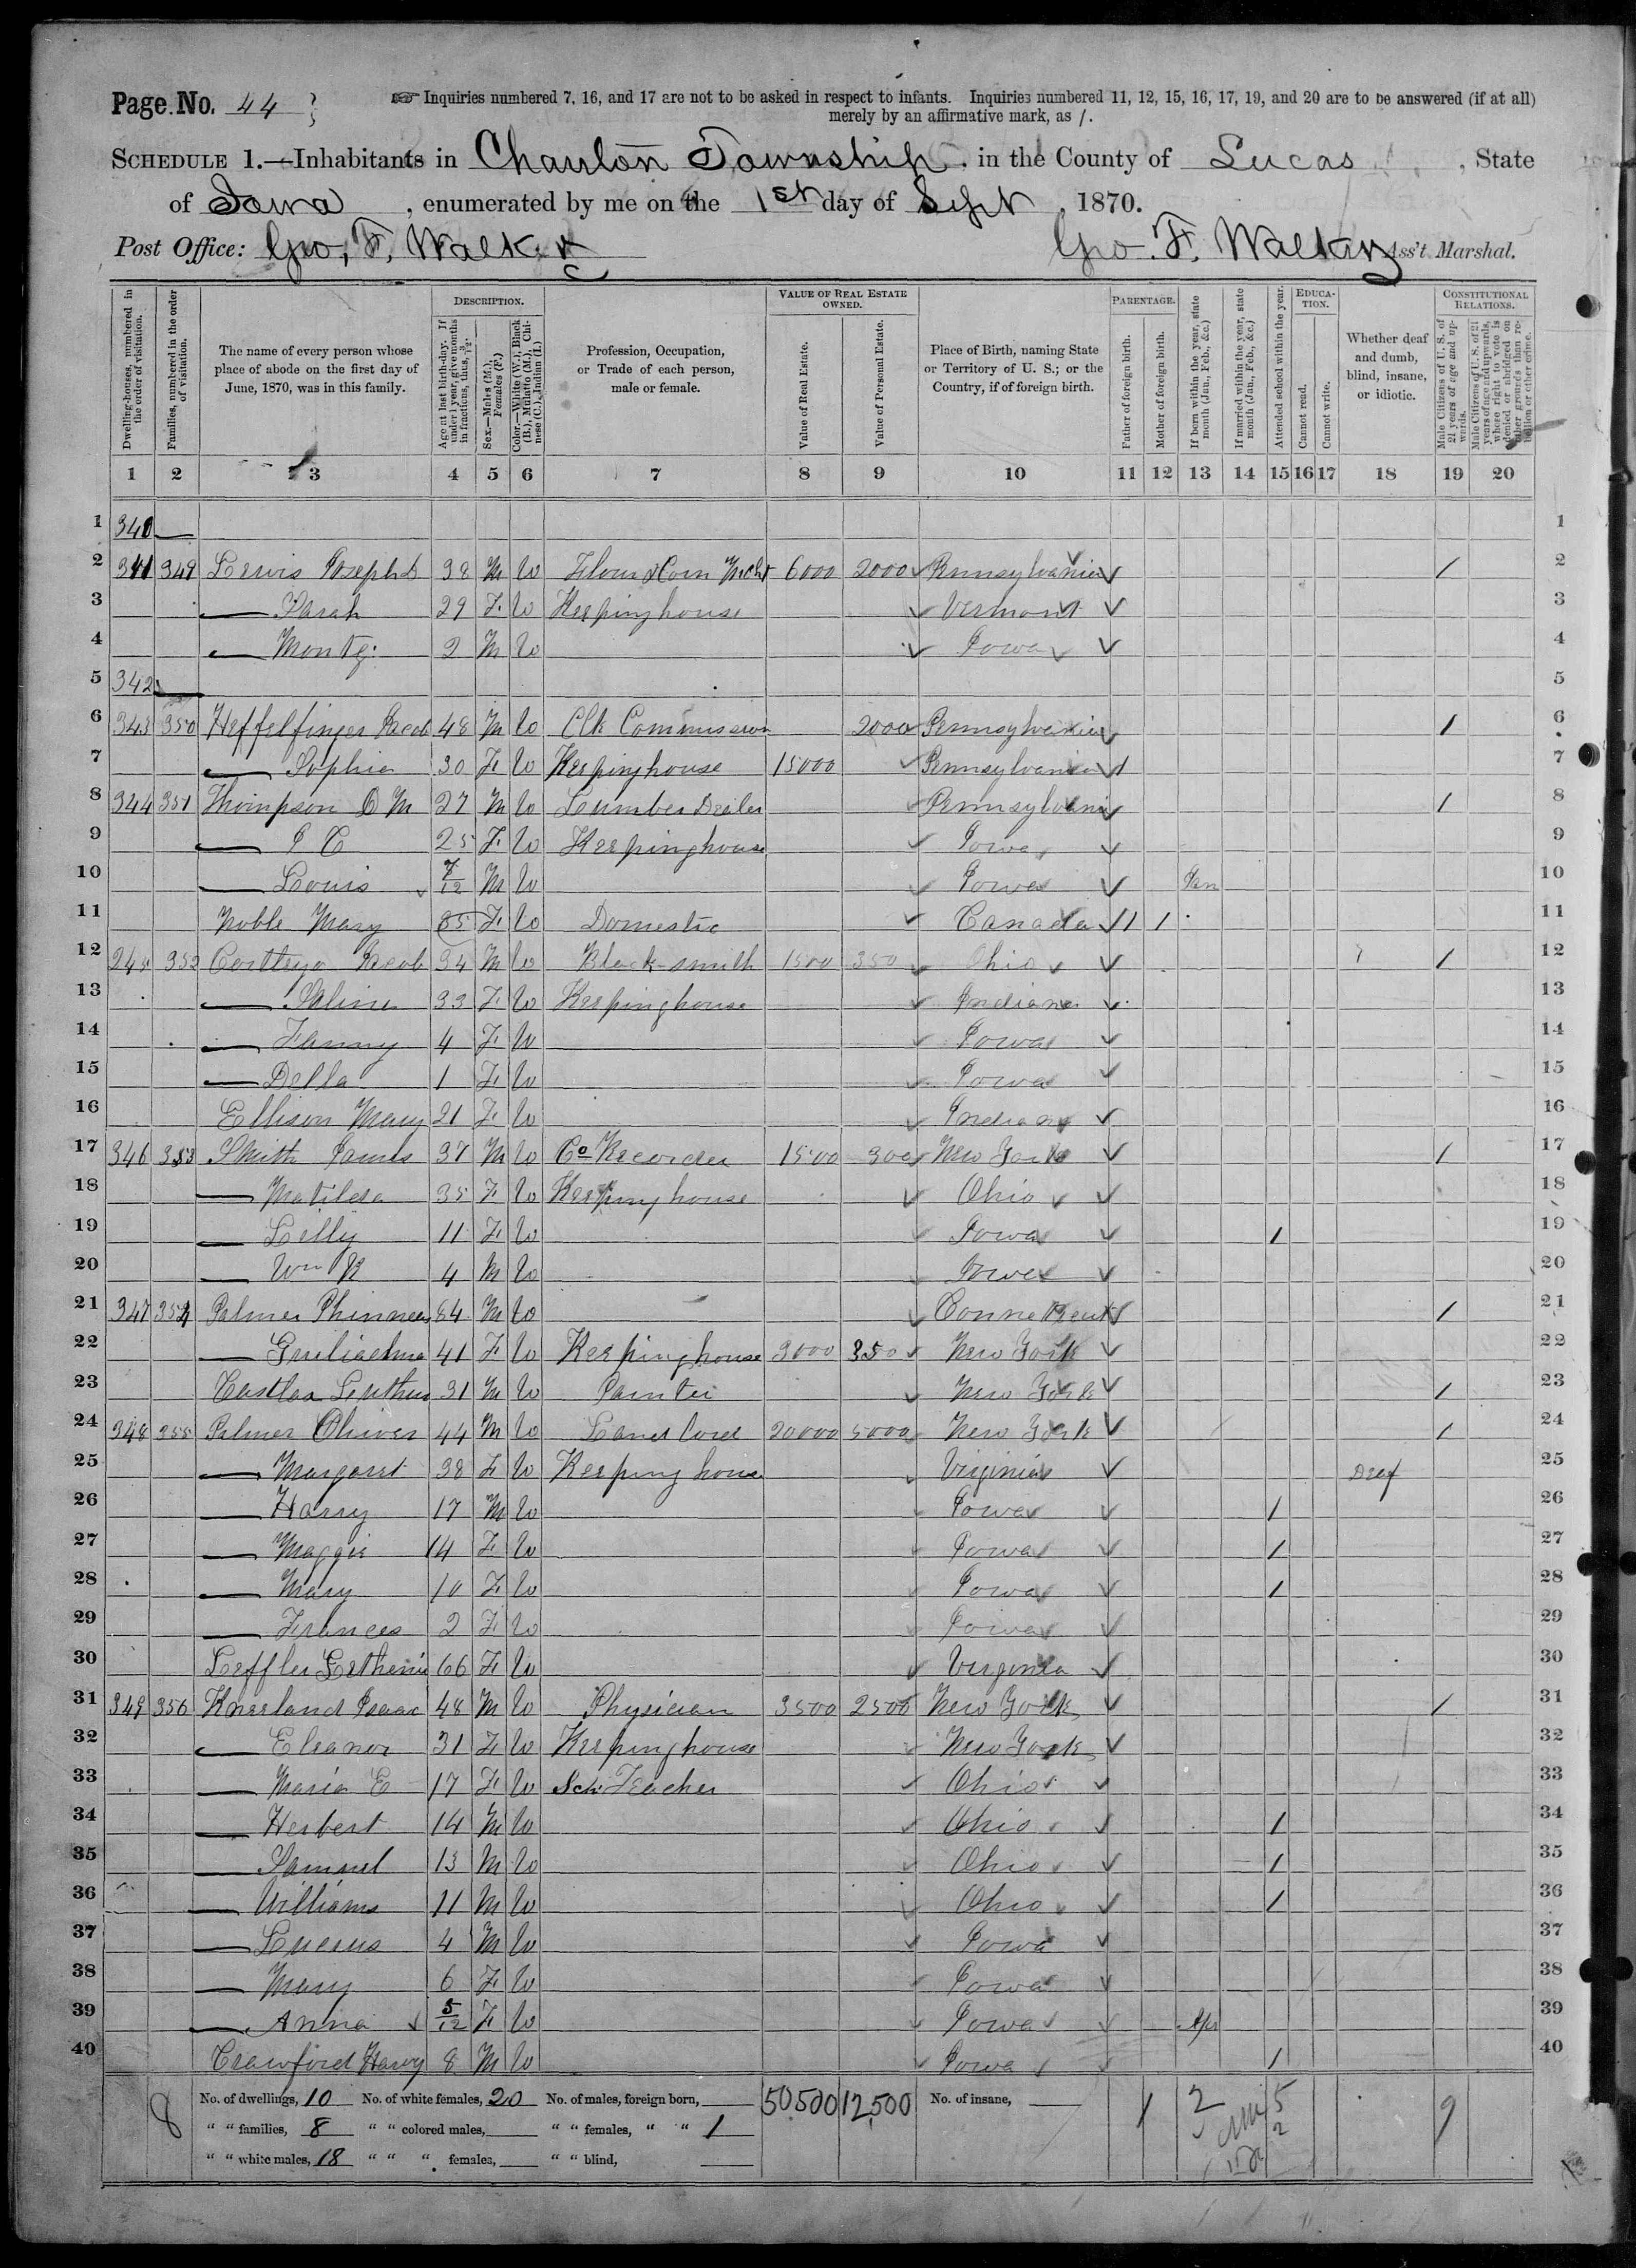 Page No. 44
☞ Inquiries numbered 7, 16, and 17 are not to be asked in respect to infants. Inquiries numbered 11, 12, 15, 16, 17, 19, and 20 are to be answered (if at all)
merely by an affirmative mark, as /.
SCHEDULE 1.—Inhabitants in Chariton Township, in the County of Lucas, State
of Iowa, enumerated by me on the 1st day of Sept, 1870.
Post Office: Geo. F. Walker Geo. F. Walker Ass't Marshal.
Dwelling-houses, numbered in the order of visitation.
Families, numbered in the order of visitation.
The name of every person whose place of abode on the first day of June, 1870, was in this family.
DESCRIPTION.
Age at last birth-day. If under 1 year, give months in fractions, thus, 3/12.
Sex.—Males (M.), Females (F.)
Color.—White (W.), Black (B.), Mulatto (M.), Chinese (C.), Indian (I.)
Profession, Occupation, or Trade of each person, male or female.
VALUE OF REAL ESTATE OWNED.
Value of Real Estate.
Value of Personal Estate.
Place of Birth, naming State or Territory of U. S.; or the Country, if of foreign birth.
PARENTAGE.
Father of foreign birth.
Mother of foreign birth.
If born within the year, state month (Jan., Feb., &c.)
If married within the year, state month (Jan., Feb., &c.)
Attended school within the year.
EDUCATION.
Cannot read.
Cannot write.
Whether deaf and dumb, blind, insane, or idiotic.
CONSTITUTIONAL RELATIONS.
Male Citizens of U. S. of 21 years of age and upwards.
Male Citizens of U. S. of 21 years of age and upwards, whose right to vote is denied or abridged on other grounds than rebellion or other crime.
1 2 3 4 5 6 7 8 9 10 11 12 13 14 15 16 17 18 19 20
1 340 — 1
2 341 349 Lewis Joseph 38 M W Flour & Corn Mcht 6000 2000 Pennsylvania / 2
3 — Sarah 29 F W Keeping house Vermont 3
4 — Montg. 2 M W Iowa 4
5 342 — 5
6 343 350 Heffelfinger Jacob 48 M W Clk Commission 2000 Pennsylvania / 6
7 — Sophia 30 F W Keeping house 15000 Pennsylvania 7
8 344 351 Thompson O M 27 M W Lumber Dealer Pennsylvania / 8
9 — 25 F W Keeping house Iowa 9
10 — Louis 7/12 M W Iowa Jan 10
11 Noble Mary F W Domestic Canada / / 11
12 345 352 Jacob 34 M W Black-smith 1500 350 Ohio / 12
13 — 33 F W Keeping house Indiana 13
14 — Fanny 4 F W Iowa 14
15 — Della 1 F W Iowa 15
16 Ellison Mary 21 F W Indiana 16
17 346 353 Smith James 37 M W Co Recorder 1500 300 New York / 17
18 — Matilda 35 F W Keeping house Ohio 18
19 — Lilly 11 F W Iowa / 19
20 — Wm R 4 M W Iowa 20
21 347 354 Palmer Phinneas 64 M W Connecticut / 21
22 — 41 F W Keeping house 3000 350 New York 22
23 31 M W Painter New York / 23
24 348 355 Palmer Oliver 44 M W Land lord 20000 5000 New York / 24
25 — Margaret 38 F W Keeping house Virginia Deaf 25
26 — Harry 17 M W Iowa / 26
27 — Maggie 14 F W Iowa / 27
28 — Mary 10 F W Iowa / 28
29 — Frances 2 F W Iowa 29
30 Leffler 66 F W Virginia 30
31 349 356 Kneeland Isaac 48 M W Physician 3500 2500 New York / 31
32 — Eleanor 31 F W Keeping house New York 32
33 — Maria E 17 F W Sch Teacher Ohio 33
34 — Herbert 14 M W Ohio / 34
35 — Samuel 13 M W Ohio / 35
36 — Williams 11 M W Ohio / 36
37 — 4 M W Iowa 37
38 — Mary 6 F W Iowa 38
39 — Anna 5/12 F W Iowa Apr 39
40 Crawford Harvy 8 M W Iowa / 40
8 No. of dwellings, 10 No. of white females, 20 No. of males, foreign born, 50500 12,500 No. of insane, 1 2 5 9
" " families, 8 " " colored males, " " females, " " 1 2
" " white males, 18 " " " females, " " blind,